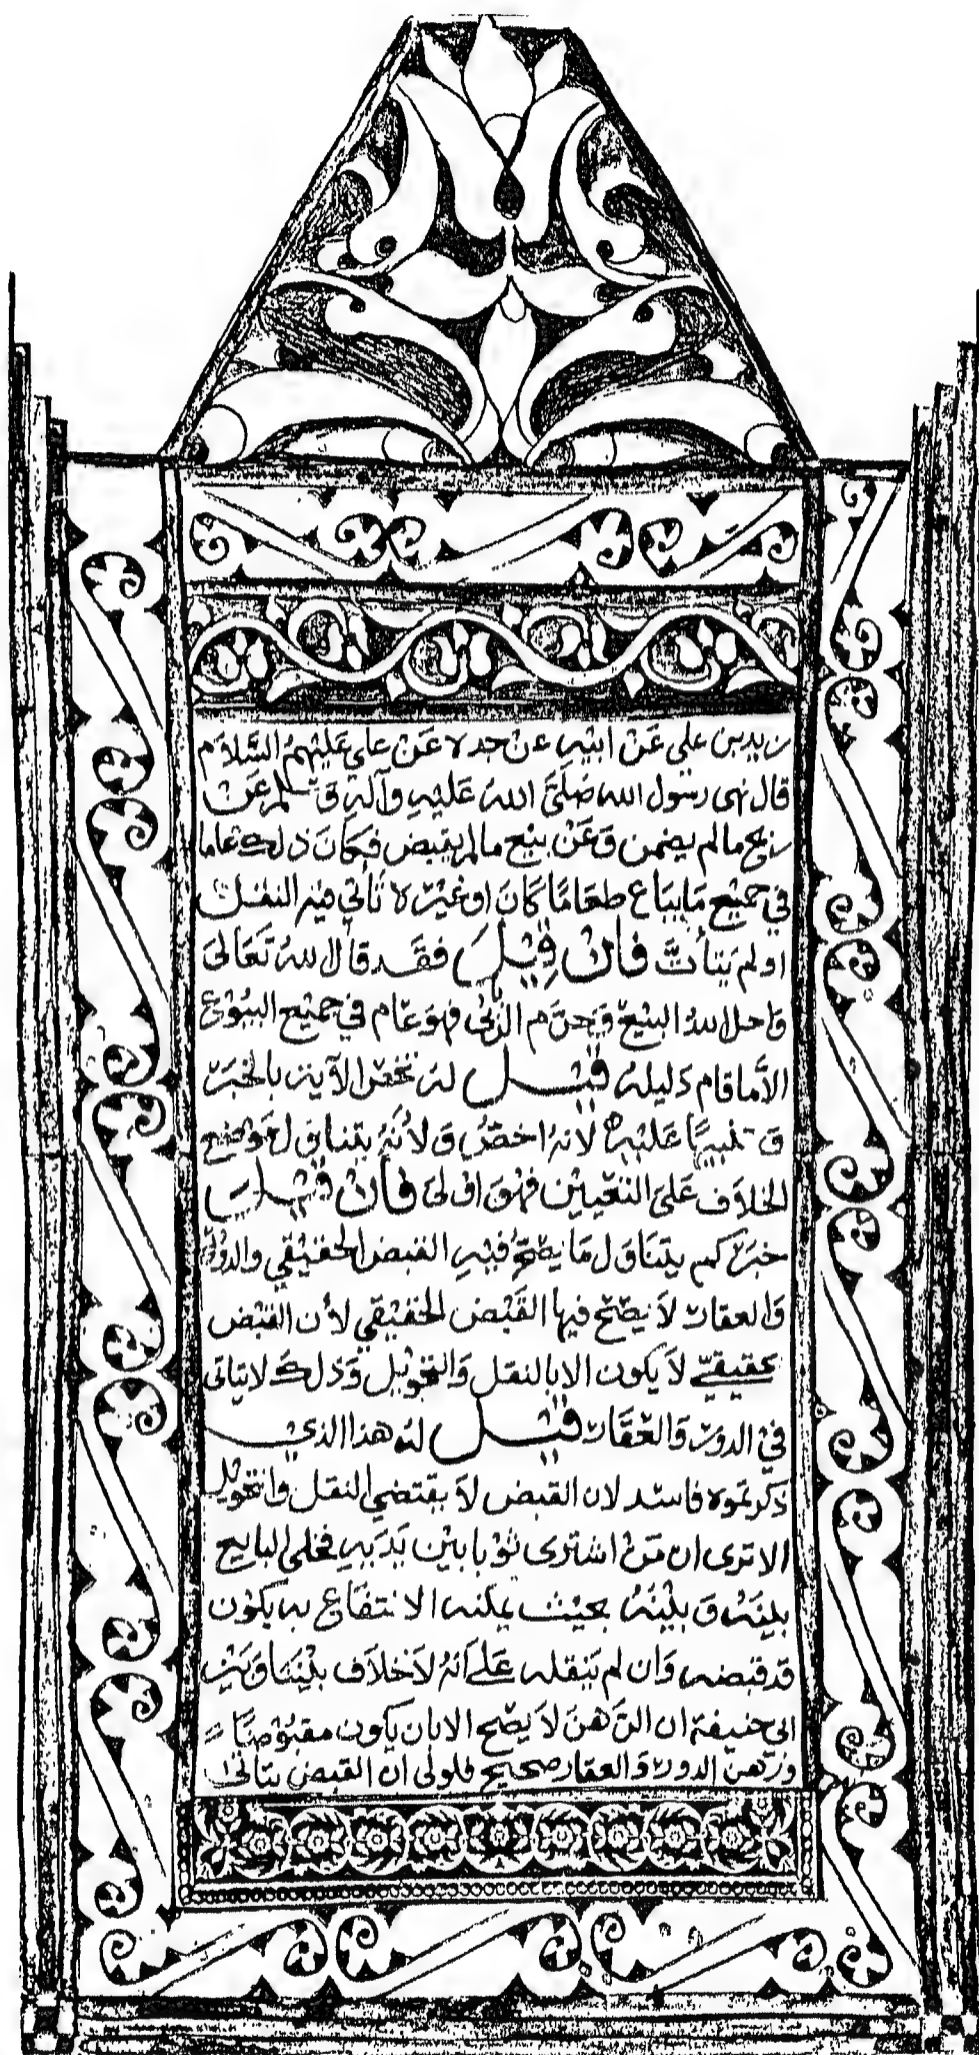 زيد بن علي عَنْ ابيْهِ عن جده عَنْ علي عَليْهمُ السَّلاَم
قال نهى رسول الله صَلَّىَ اللهُ عَليْهِ وَآلهِ وَسلم عَنْ
ربح مالم يضمن وَعَنْ بيْع مالم يقبض فكانَ ذلك عَاما
في جميْع مَا يبَاع طعَامًا كَانَ اوغيْره تأتي فيْه النقل
اولم يَتأتَّ فَانْ قِيْلَ فقَد قالَ اللهُ تَعَالىَ
وَاحل اللهُ البيْعَ وَحرَّم الرِّبٰى فهوَ عَام في جميْع البيُوْع
الاَّ ما قام دَليلهُ قيْل لهُ نخصّ الآيَة بالخبَر
وَ عَليْهِ لانهُ اخصّ وَلأنَّهُ يتناوَل موْضع
الخلاَف عَلىَ التعْيين فهوَ اوْلىَ فَانْ قيْلَ
خبَركم يتناوَل مَا يَصحّ فيْهِ القبض الحقيْقي والدوُر
وَالعقار لاَ يصحّ فيها القَبْض الحقيْقي لأن القبْض
حقيقيّ لاَ يكون الا بالنقل وَالتحْويْل وَذلكَ لايتاتى
فيْ الدوْر وَالعَقَار قيْل لهُ هذا الذي
ذكرتموه فاسد لان القبض لاَ يقتضي النقل وَالتحْويْل
الا ترى ان مَنْ اشترى ثوْبا بيْن يَدَيهِ فخلى البايع
بيْنهُ وَ بيْنَهُ بحيْث يمكنه الانتفَاع به يكوْن
قد قبضه وَان لم يَنقله عَلىَ اَنهُ لاَ خلاَف بيْننَا وَبيْن
ابي حنيفة ان الرّهنَ لاَ يصّح الا بان يكون مقبُوْضًا
وَرَهنُ الدور وَالعقار صحيح فلولى ان القبض يتأتى